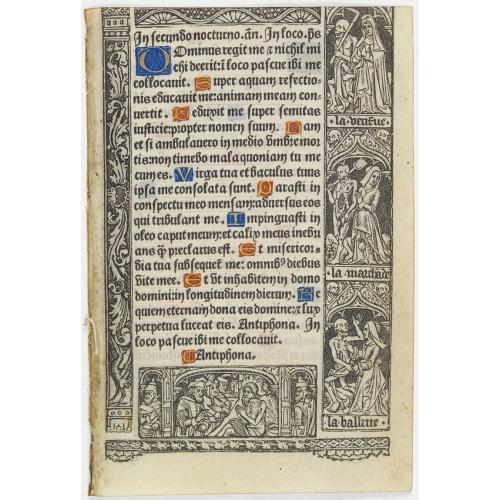 In secundo nocturno. añ. In loco. ps
Ominus regit me ⁊ nichil mi
chi deerit: ĩ loco pascue ibi me
collocauit. Super aquam refectio-
nis educauit me: animam meam con
uertit. Deduxit me super semitas
iusticie: propter nomen suum. Nam
et si ambulauero in medio vmbre mor
tis: non timebo mala quoniam tu me
cum es. Virga tua et baculus tuus
ipsa me consolata sunt. Parasti in
conspectu meo mensam: aduersus eos
qui tribulant me. Impinguasti in
oleo caput meum: et calix meus inebri
ans q̄ preclarus est. Et misericor-
dia tua subsequet me: omnibꝰ diebus
vite mee. Et vt inhabitem in domo
domini: in longitudinem dierum. Re
quiem eternam dona eis domine: ⁊ lux
perpetua luceat eis. Antiphona. In
loco pascue ibi me collocauit.
Antiphona.
la veufue
la marchãde
la balliue